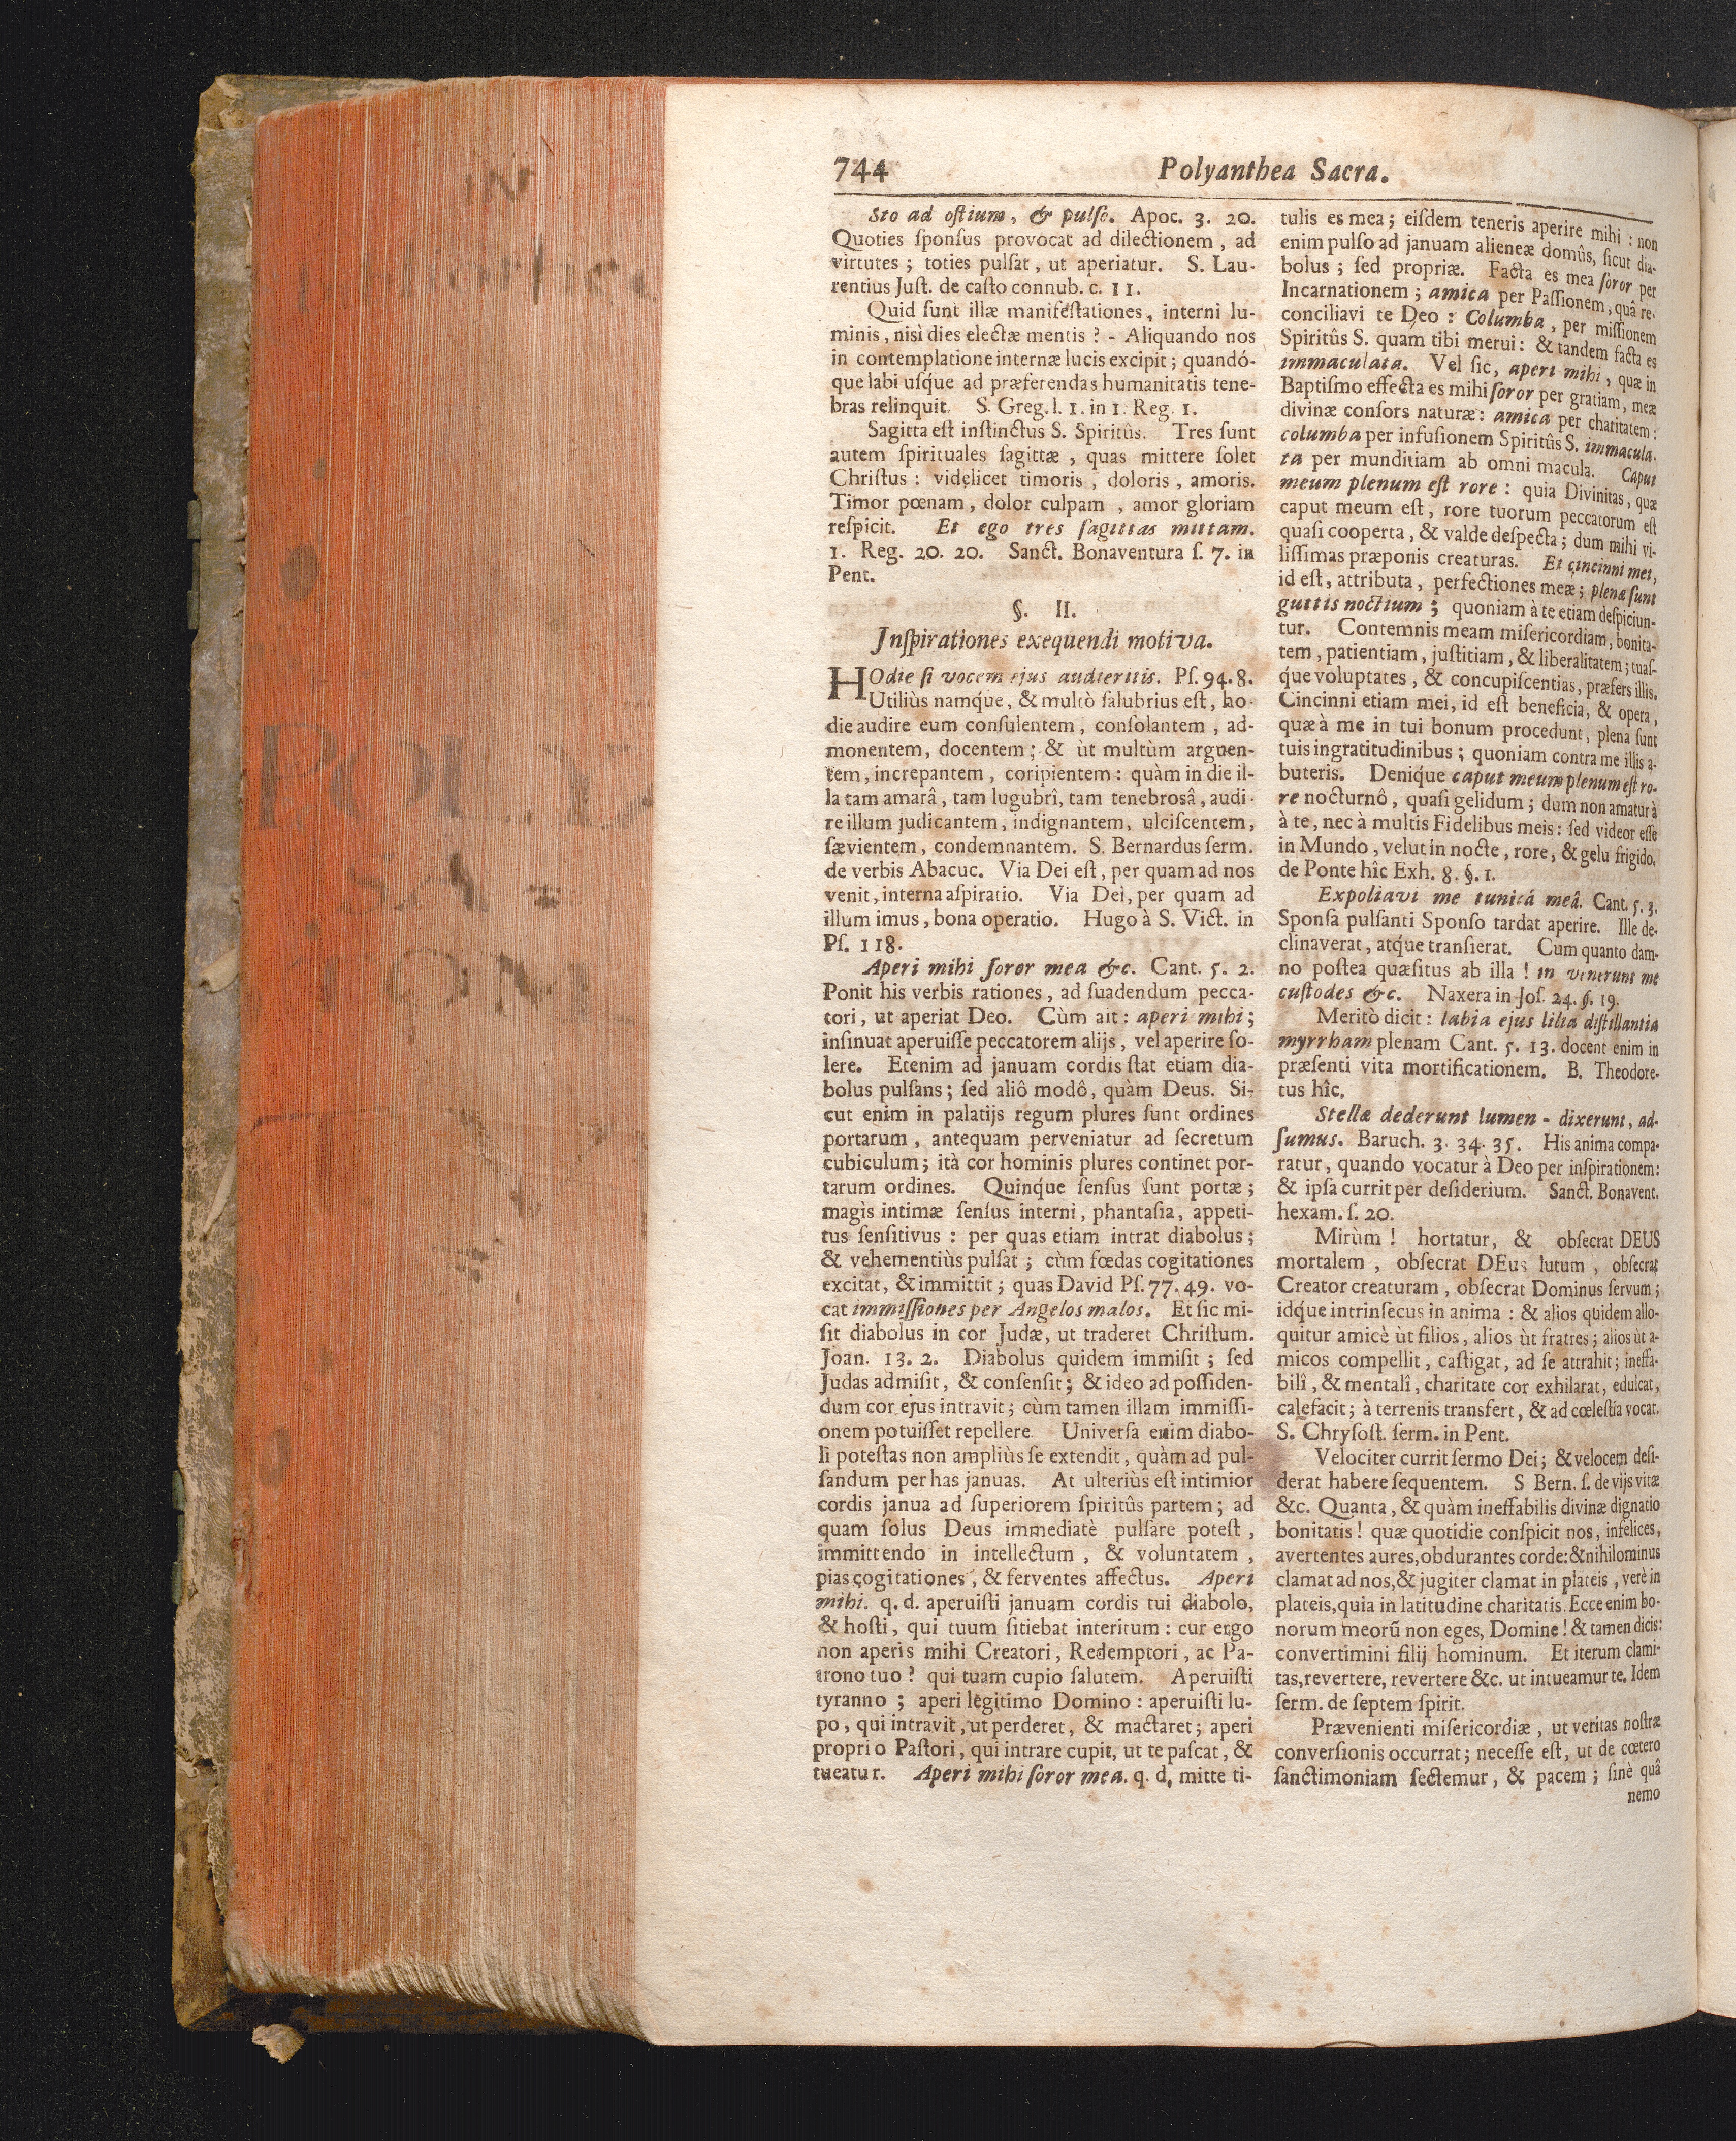 744 Polyanthea Sacra.
Sto ad oſtium, & pulſo. Apoc. 3. 20.
Quoties ſponſus provocat ad dilectionem, ad
virtutes; toties pulſat, ut aperiatur. S. Lau-
rentius Juſt. de caſto connub. c. 11.
Quid ſunt illæ manifeſtationes, interni lu-
minis, nisi dies electæ mentis? - Aliquando nos
in contemplatione internæ lucis excipit; quandó-
que labi uſque ad præferendas humanitatis tene-
bras relinquit. S. Greg. l. 1. in 1. Reg. 1.
Sagitta eſt inſtinctus S. Spiritûs. Tres ſunt
autem ſpirituales ſagittæ, quas mittere ſolet
Chriſtus: videlicet timoris, doloris, amoris.
Timor pœnam, dolor culpam, amor gloriam
reſpicit. Et ego tres ſagittas mittam.
1. Reg. 20. 20. Sanct. Bonaventura ſ. 7. in
Pent.
§. II.
Inſpirationes exequendi motiva.
HOdie ſi vocem ejus audieritis. Pſ. 94. 8.
Utiliùs namq́ue, & multò ſalubrius eſt, ho-
die audire eum conſulentem, conſolantem, ad-
monentem, docentem; & ùt multùm arguen-
tem, increpantem, coripientem: quàm in die il-
la tam amarâ, tam lugubrî, tam tenebrosâ, audi-
re illum judicantem, indignantem, ulciſcentem,
ſævientem, condemnantem. S. Bernardus ſerm.
de verbis Abacuc. Via Dei eſt, per quam ad nos
venit, interna aſpiratio. Via Dei, per quam ad
illum imus, bona operatio. Hugo à S. Vict. in
Pſ. 118.
Aperi mihi ſoror mea &c. Cant. 5. 2.
Ponit his verbis rationes, ad ſuadendum pecca-
tori, ut aperiat Deo. Cùm ait: aperi mihi;
inſinuat aperuiſſe peccatorem alijs, vel aperire ſo-
lere. Etenim ad januam cordis ſtat etiam dia-
bolus pulſans; ſed aliô modô, quàm Deus. Si-
cut enim in palatijs regum plures ſunt ordines
portarum, antequam perveniatur ad ſecretum
cubiculum; ità cor hominis plures continet por-
tarum ordines. Quinq́ue ſenſus ſunt portæ;
magìs intimæ ſenſus interni, phantaſia, appeti-
tus ſenſitivus: per quas etiam intrat diabolus;
& vehementiùs pulſat; cùm fœdas cogitationes
excitat, & immittit; quas David Pſ. 77. 49. vo-
cat immiſſiones per Angelos malos. Et ſic mi-
ſit diabolus in cor Judæ, ut traderet Chriſtum.
Joan. 13. 2. Diabolus quidem immiſit; ſed
Judas admiſit, & conſenſit; & ideo ad poſſiden-
dum cor ejus intravit; cùm tamen illam immiſſi-
onem potuiſſet repellere. Universa enim diabo-
li poteſtas non ampliùs ſe extendit, quàm ad pul-
ſandum per has januas. At ulteriùs eſt intimior
cordis janua ad ſuperiorem ſpiritûs partem; ad
quam ſolus Deus immediatè pulſare poteſt,
immittendo in intellectum, & voluntatem,
pias cogitationes, & ferventes affectus. Aperi
mihi. q. d. aperuiſti januam cordis tui diabolo,
& hoſti, qui tuum ſitiebat interitum: cur ergo
non aperis mihi Creatori, Redemptori, ac Pa-
trono tuo? qui tuam cupio ſalutem. Aperuiſti
tyranno; aperi legitimo Domino: aperuiſti lu-
po, qui intravit, ut perderet, & mactaret; aperi
proprio Paſtori, qui intrare cupit, ut te paſcat, &
tueatur. Aperi mihi ſoror mea. q. d. mitte ti-
tulis es mea; eiſdem teneris aperire mihi: non
enim pulſo ad januam alieneæ domûs, ſicut dia-
bolus; ſed propriæ. Facta es mea ſoror per
Incarnationem; amica per Paſſionem, quâ re-
conciliavi te Deo: Columba, per miſſionem
Spiritûs S. quam tibi merui: & tandem facta es
immaculata. Vel ſic, aperi mihi, quæ in
Baptiſmo effecta es mihi ſoror per gratiam, meæ
divinæ conſors naturæ: amica per charitatem:
columba per infuſionem Spiritûs S. immacula-
ta per munditiam ab omni macula. Caput
meum plenum eſt rore: quia Divinitas, quæ
caput meum eſt, rore tuorum peccatorum eſt
quaſi cooperta, & valde deſpecta; dum mihi vi-
liſſimas præponis creaturas. Et cincinni mei,
id eſt, attributa, perfectiones meæ; plenæ ſunt
guttis noctium; quoniam à te etiam deſpiciun-
tur. Contemnis meam miſericordiam, bonita-
tem, patientiam, juſtitiam, & liberalitatem; tuaſ-
q́ue voluptates, & concupiſcentias, præfers illis.
Cincinni etiam mei, id eſt beneficia, & opera,
quæ à me in tui bonum procedunt, plena ſunt
tuis ingratitudinibus; quoniam contra me illis a-
buteris. Deniq́ue caput meum plenum eſt ro-
re nocturnô, quaſi gelidum; dum non amatur à
à te, nec à multis Fidelibus meis: ſed videor eſſe
in Mundo, velut in nocte, rore, & gelu frigido.
de Ponte hîc Exh. 8. §. 1.
Expoliavi me tunicâ meâ. Cant. 5. 3.
Sponſa pulſanti Sponſo tardat aperire. Ille de-
clinaverat, atq́ue tranſierat. Cum quanto dam-
no poſtea quæſitus ab illa! in venerunt me
cuſtodes &c. Naxera in Joſ. 24. §. 19.
Meritò dicit: labia ejus lilia diſtillantia
myrrham plenam Cant. 5. 13. docent enim in
præſenti vita mortificationem. B. Theodore-
tus hîc.
Stellæ dederunt lumen - dixerunt, ad-
ſumus. Baruch. 3. 34. 35. His anima compa-
ratur, quando vocatur à Deo per inſpirationem:
& ipſa currit per deſiderium. Sanct. Bonavent.
hexam. ſ. 20.
Mirùm! hortatur, & obſecrat DEUS
mortalem, obſecrat DEus lutum, obſecrat
Creator creaturam, obſecrat Dominus ſervum;
idq́ue intrinſecus in anima: & alios quidem allo-
quitur amicè ùt filios, alios ùt fratres; alios ùt a-
micos compellit, caſtigat, ad ſe attrahit; ineffa-
bilî, & mentalî, charitate cor exhilarat, edulcat,
calefacit; à terrenis transfert, & ad cœleſtia vocat.
S. Chryſoſt. ſerm. in Pent.
Velociter currit ſermo Dei; & velocem deſi-
derat habere ſequentem. S Bern. ſ. de vijs vitæ
&c. Quanta, & quàm ineffabilis divinæ dignatio
bonitatis! quæ quotidie conſpicit nos, infelices,
avertentes aures, obdurantes corde: & nihilominus
clamat ad nos, & jugiter clamat in plateis, verè in
plateis, quia in latitudine charitatis. Ecce enim bo-
norum meorũ non eges, Domine! & tamen dicis:
convertimini filij hominum. Et iterum clami-
tas, revertere, revertere &c. ut intueamur te. Idem
ſerm. de ſeptem ſpirit.
Prævenienti miſericordiæ, ut veritas noſtræ
converſionis occurrat; neceſſe eſt, ut de cœtero
ſanctimoniam ſectemur, & pacem; ſinè quâ
nemo